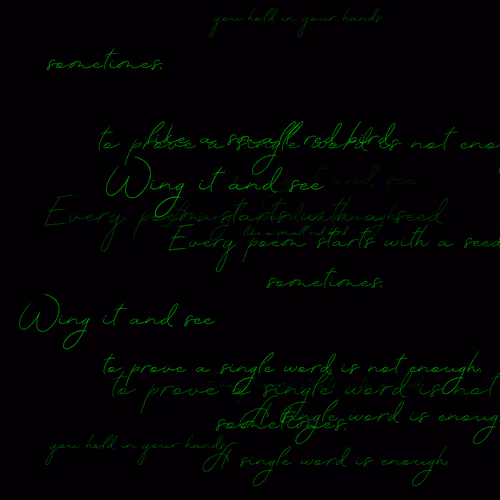 you hold in your hands
sometimes.
like a small red birds
to prove a single word is not eno
Wing it and see
and see
Every poem starts with a seed
like a small red bird
Every poem starts with a seed
sometimes.
Wing it and see
to prove a single word is not enough.
to prove a single word is not
A single word is enoug
sometimes.
you hold in your hands
A single word is enough.